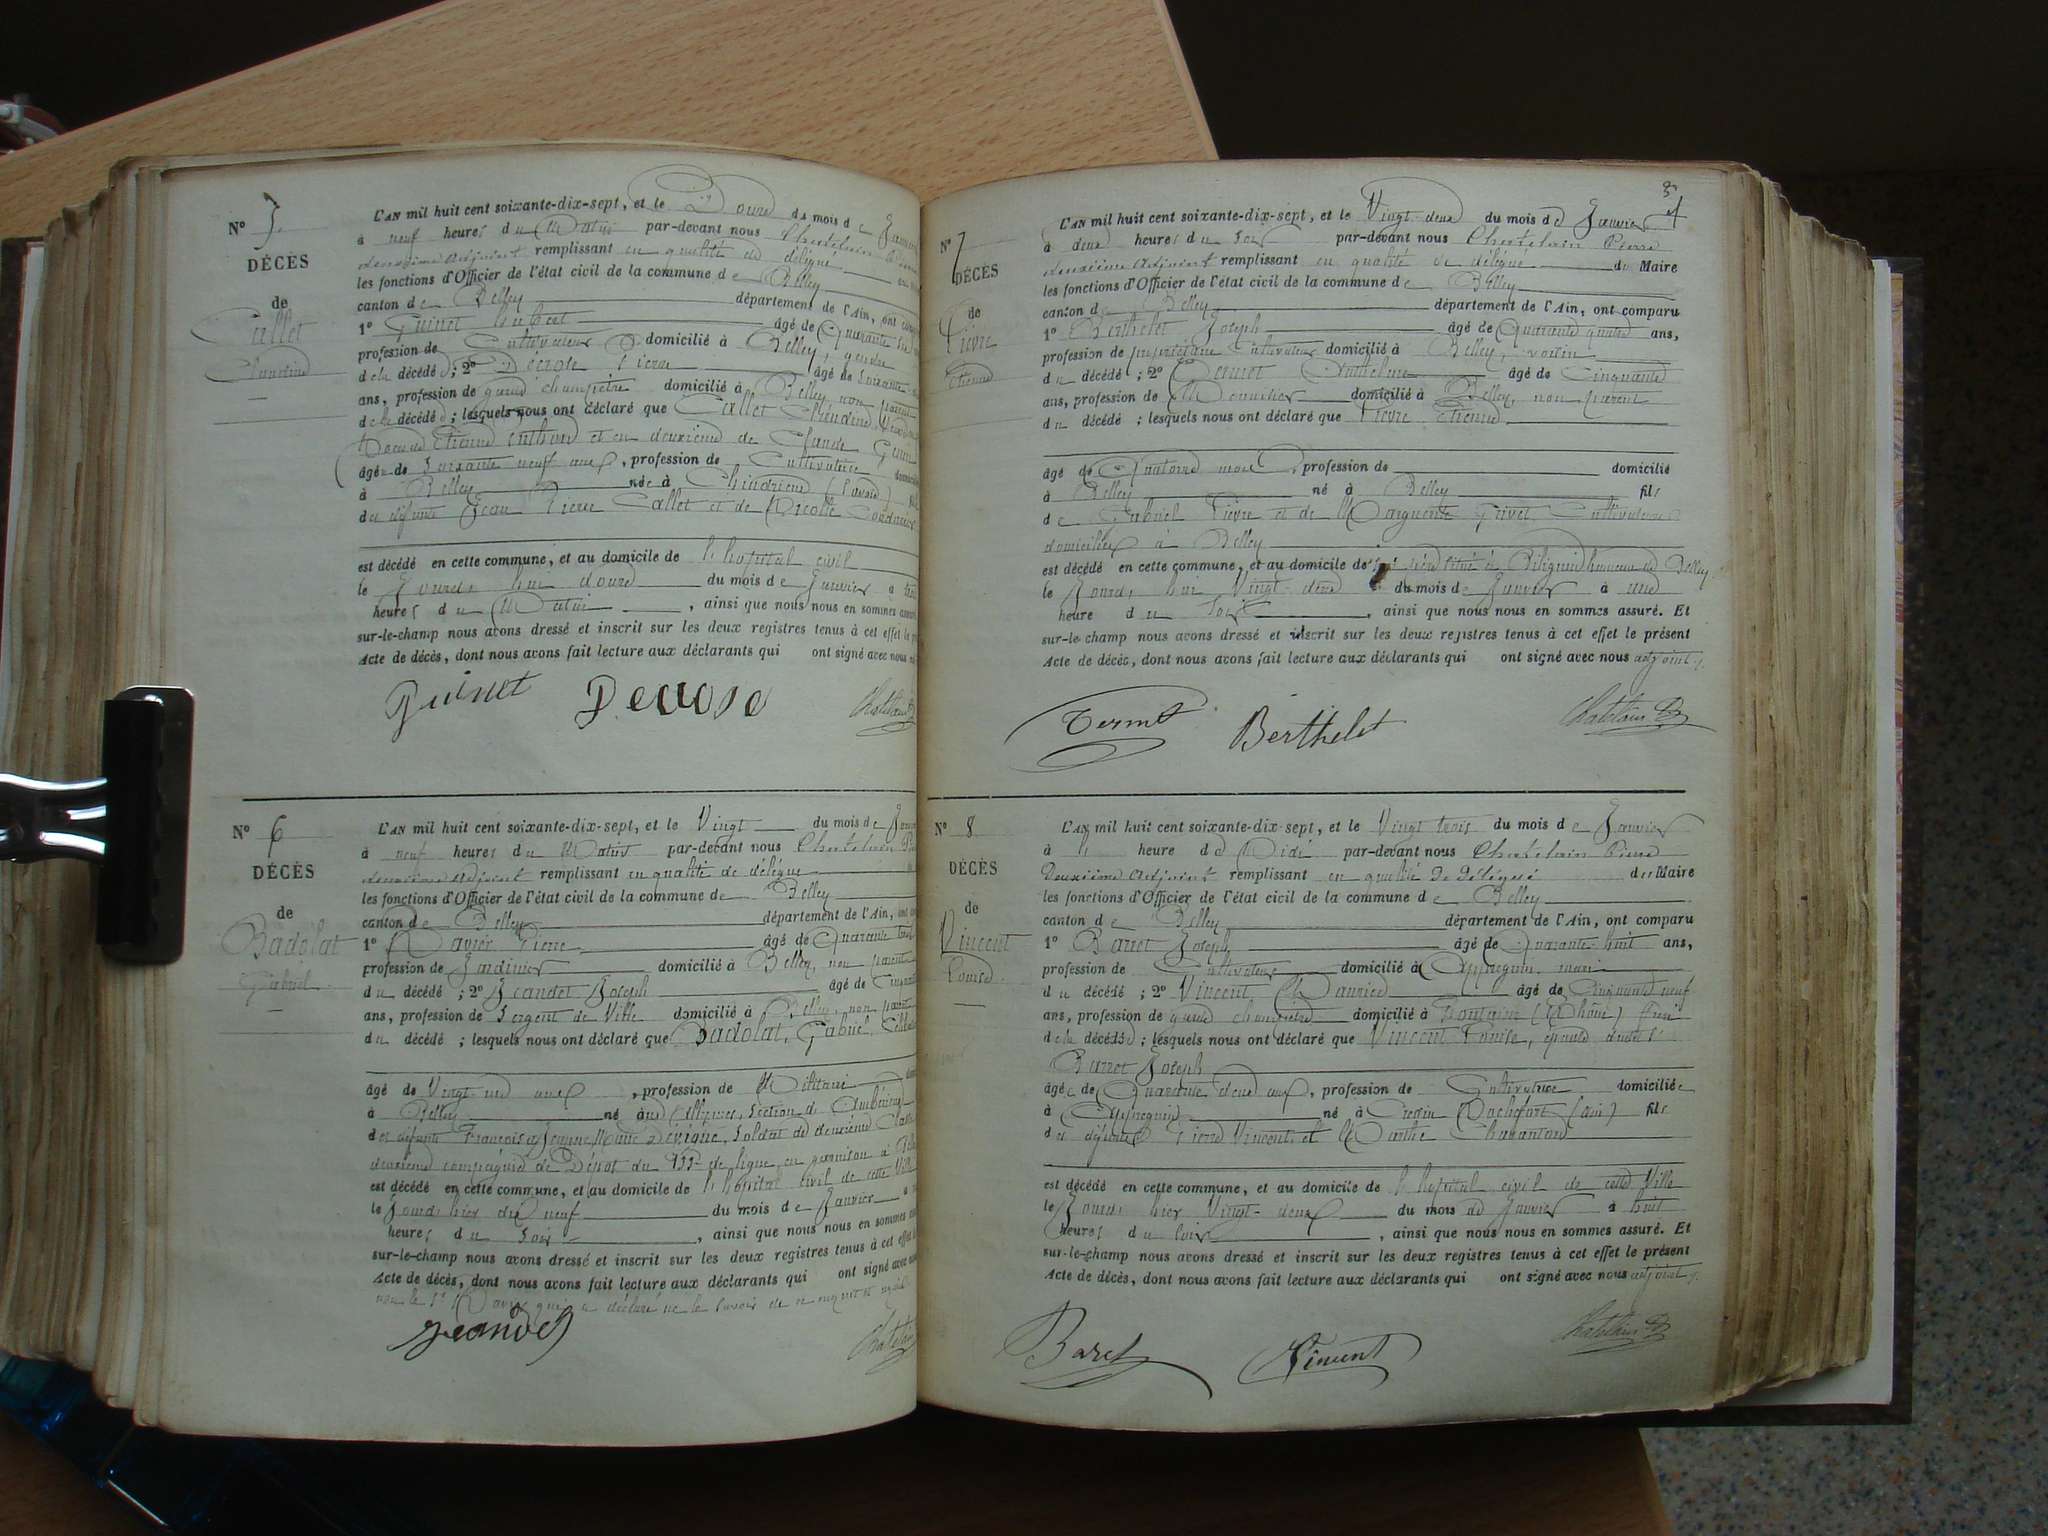 N° 5.
DÉCÈS
de
Callet
Claudine
L'AN mil huit cent soixante-dix-sept, et le Douze du mois de
à neuf heures du Matin par-devant nous Chatelain
deuxième adjoint remplissant en qualité de délégué
les fonctions d'Officier de l'état civil de la commune de Belley
canton de Belley département de l'Ain, ont
1° Guinet hubert âgé de Quarante
profession de Cultivateur domicilié à Belley, gendre
de la décédée; 2° Décrose Pierre âgé de soixante
ans, profession de garde champetre domicilié à Belley, non parent
de la décédée; lesquels nous ont déclaré que Callet Claudine,
Etienne et en deuxième de Claude
âgée de Soixante neuf ans, profession de Cultivatrice
à Belley née à Chindrieux (Savoie)
des défunts Jean Pierre Callet et de Nicolle
est décédé en cette commune, et au domicile de l'hopital civil
le Jourd'hui douze du mois de Janvier à
heures du Matin, ainsi que nous nous en sommes
sur-le-champ nous avons dressé et inscrit sur les deux registres tenus à cet effet le
Acte de décès, dont nous avons fait lecture aux déclarants qui ont signé avec nous
Guinet Decrose Chatelain
N° 6
DÉCÈS
de
Badolat
Gabriel
L'AN mil huit cent soixante-dix-sept, et le Vingt du mois de
à neuf heures du Matin par-devant nous Chatelain
deuxième adjoint remplissant en qualité de délégué
les fonctions d'Officier de l'état civil de la commune de Belley
canton de Belley département de l'Ain, ont
1° Pierre âgé de Quarante
profession de Jardinier domicilié à Belley, non parent
du décédé; 2° Jeandet Joseph âgé de
ans, profession de Sergent de Ville domicilié à Belley, non parent
du décédé; lesquels nous ont déclaré que Badolat, Gabriel,
âgé de Vingt un ans, profession de Militaire
à Belley né à Section de
des défunts François et Jeanne Marie Dévigne, Soldat de deuxième
deuxième compagnie de Dépot du 133e de ligne en garnison à
est décédé en cette commune, et au domicile de l'hopital civil de cette Ville
le Jourd'hier dix neuf du mois de Janvier à
heures du Soir, ainsi que nous nous en sommes
sur-le-champ nous avons dressé et inscrit sur les deux registres tenus à cet effet
Acte de décès, dont nous avons fait lecture aux déclarants qui ont signé avec
non le Sr qui a déclaré ne le savoir de ce requis
Jeandet Chatelain
4
N° 7
DÉCÈS
de
Pièvre
Etienne
L'AN mil huit cent soixante-dix-sept, et le Vingt-deux du mois de Janvier
à deux heures du soir par-devant nous Chatelain Pierre
deuxième adjoint remplissant en qualité de délégué du Maire
les fonctions d'Officier de l'état civil de la commune de Belley
canton de Belley département de l'Ain, ont comparu
1° Berthelet Joseph âgé de Quarante quatre ans,
profession de propriétaire Cultivateur domicilié à Belley, voisin
du décédé; 2° Anthelme âgé de Cinquante
ans, profession de domicilié à Belley, non parent
du décédé; lesquels nous ont déclaré que Pièvre Etienne
âgé de Quatorze mois, profession de domicilié
à Belley né à Belley fils
de Gabriel Pièvre et de Marguerite Grivet Cultivateurs
domiciliés à Belley
est décédé en cette commune, et au domicile de situé à Billignin hameau de Belley
le Jourd'hui Vingt deux du mois de Janvier à une
heure du Soir, ainsi que nous nous en sommes assuré. Et
sur-le-champ nous avons dressé et inscrit sur les deux registres tenus à cet effet le présent
Acte de décès, dont nous avons fait lecture aux déclarants qui ont signé avec nous adjoint.
Berthelet Chatelain P
N° 8
DÉCÈS
de
Vincent
Louise
L'AN mil huit cent soixante-dix-sept, et le Vingt trois du mois de Janvier
à heure de Midi par-devant nous Chatelain Pierre
Deuxième adjoint remplissant en qualité De Délégué du Maire
les fonctions d'Officier de l'état civil de la commune de Belley
canton de Belley département de l'Ain, ont comparu
1° Barret Joseph âgé de Quarante huit ans,
profession de Cultivateur domicilié à mari
du décédé; 2° Vincent Maurice âgé de Cinquante neuf
ans, profession de garde champetre domicilié à Fontaine (Rhône) frère
de la décédée; lesquels nous ont déclaré que Vincent Louise, épouse dudit Sr
Barret Joseph
âgée de Quarante deux ans, profession de Cultivatrice domiciliée
à né à Cressin Rochefort (ain) fille
des défunts Pierre Vincent et Marthe
est décédé en cette commune, et au domicile de l'hopital civil de cette Ville
le Jourd'hier Vingt-deux du mois de Janvier à huit
heures du soir, ainsi que nous nous en sommes assuré. Et
sur-le-champ nous avons dressé et inscrit sur les deux registres tenus à cet effet le présent
Acte de décès, dont nous avons fait lecture aux déclarants qui ont signé avec nous adjoint.
Baret Vincent Chatelain P